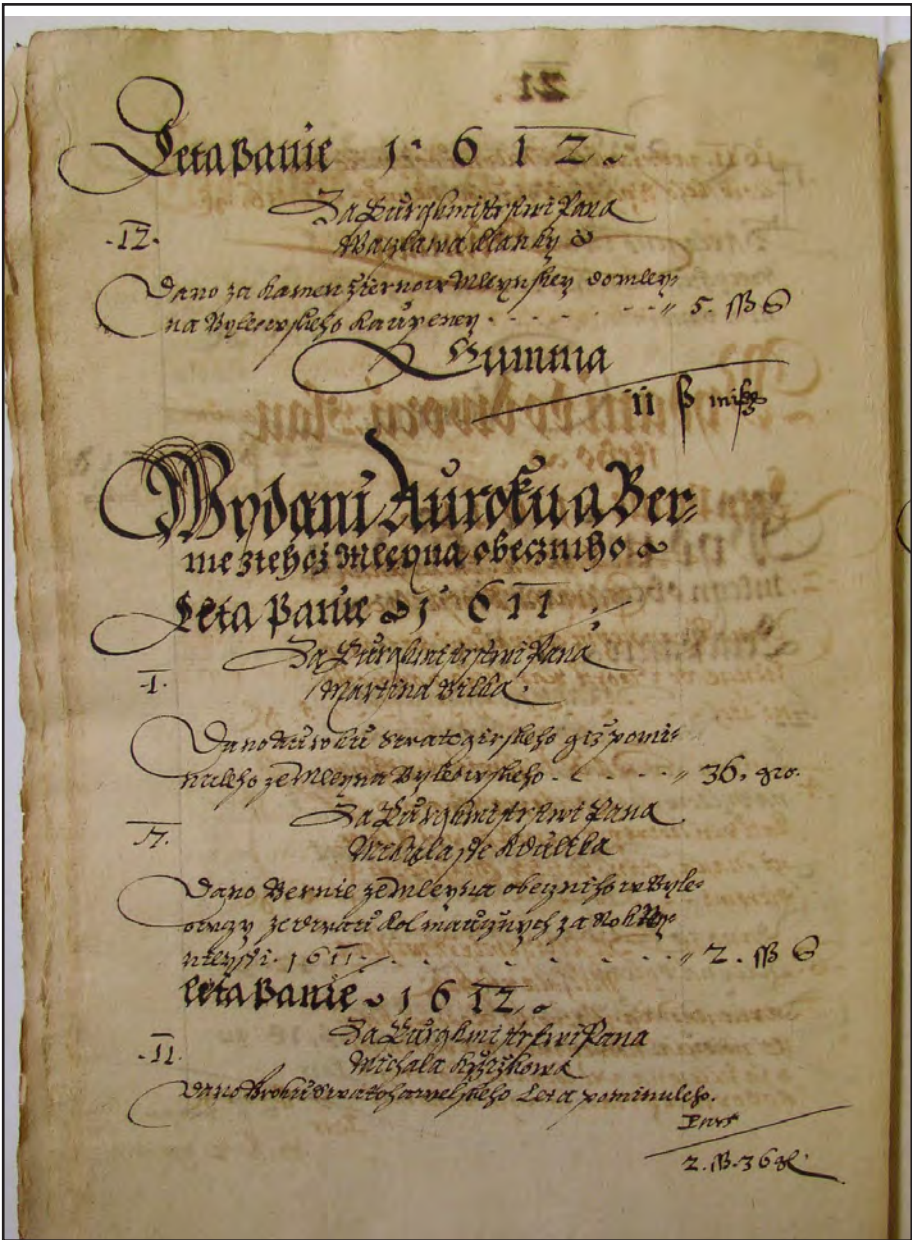 21.
Leta Panie 1 6 1 2.
Za Burghmistrstwi Pana
-12. Waczlawa
Dano za kamen ziernow Mleynskey do mley-
na Byleowskeho kaupeney - - - - - - " 5. ßß
Summa
11 ß misz
Wydani Auroku a Ber-
nie z tehoz Mleyna obeczniho
Leta Panie 1 6 11
Za Burghmistrstwi Pana
-1. Martina Bilka.
Dano Auroku Swatogirskeho giz pomi-
nuleho ze Mleyna Byleowskeho - - - - " 36. gro.
Za Burghmistrstwi Pana
Michala
Dano Bernie ze Mleyna obeczniho w Byle-
owczy ze dwau kol maucznych za Rok
1611 - - - - - - " 2. ßß
Leta Panie 1 6 12
Za Burghmistrstwi Pana
-11. Michala
Dano Uroku Swatohawelskeho Leta pominuleho.
2. ß. 36 g